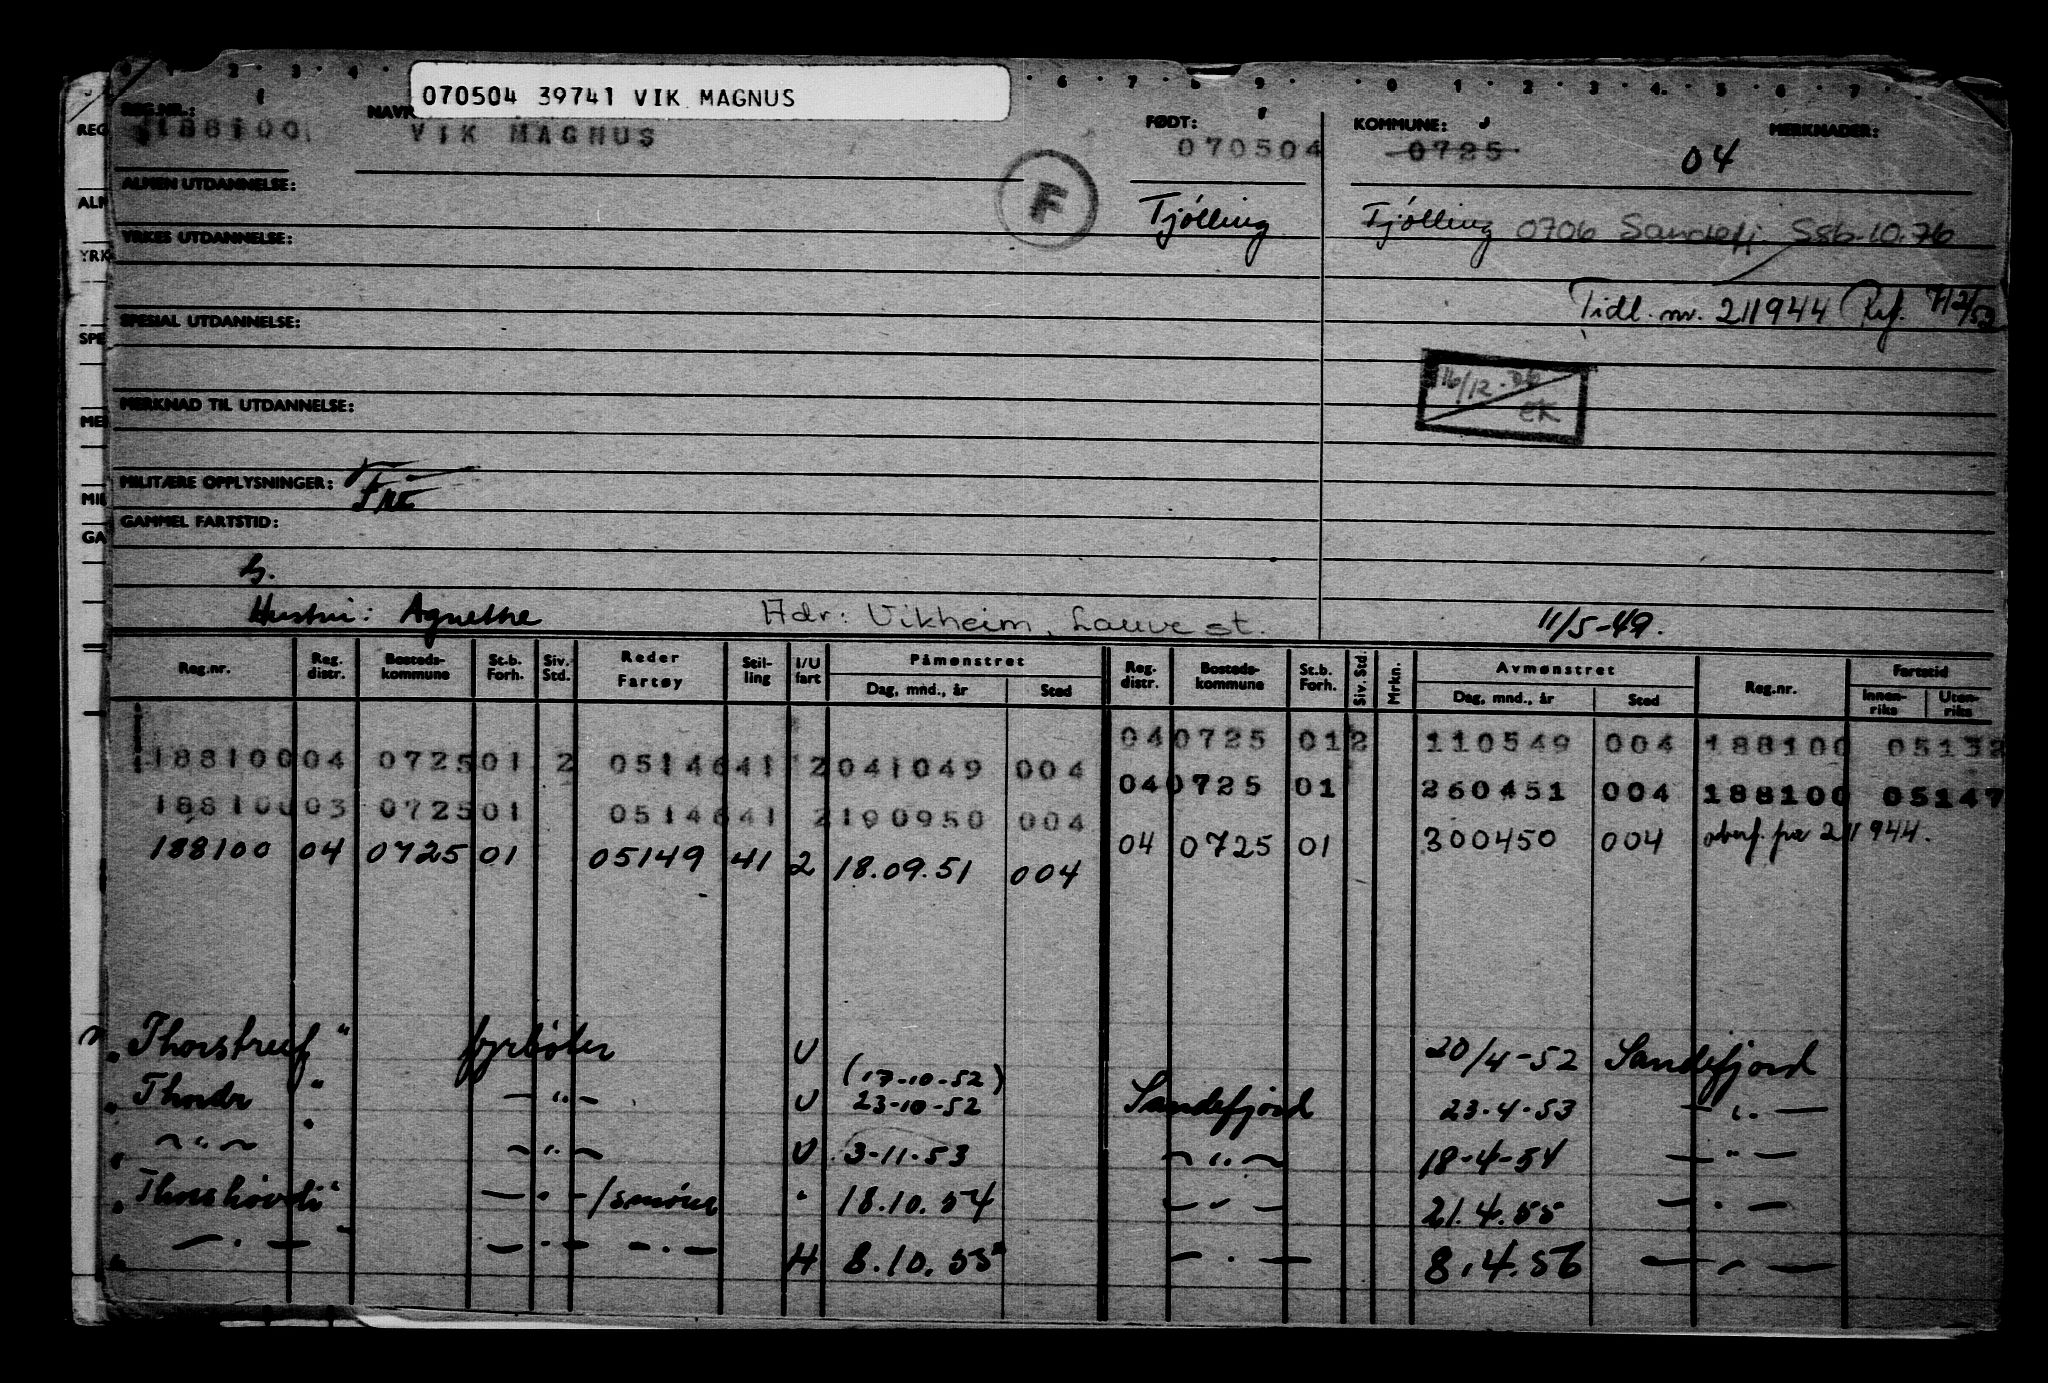 070504 39741 VIK MAGNUS
REG.NR.: NAVN FØDT: KOMMUNE: MERKNADER:
188100 VIK MAGNUS 070504 0725 04
F
ALMEN UTDANNELSE:
Tjølling Tjølling 0706 Sandefj. Ssb-10.76
YRKES UTDANNELSE:
Tidl. nr. 211944 Ref. 712/52
SPESIAL UTDANNELSE:
16/12
EK
MERKNAD TIL UTDANNELSE:
MILITÆRE OPPLYSNINGER:
GAMMEL FARTSTID:
Hustru: Agnethe Adr: Vikheim, Lauve st. 11/5-49.
Reg.nr. Reg. distr. Bosteds-kommune St.b. Forh. Siv. Std. Reder Fartøy Stil-ling I/U fart Påmønstret Dag, mnd., år Sted Reg. distr. Bosteds-kommune St.b. Forh. Siv. Std. Mrkn. Avmønstret Dag, mnd., år Sted Reg.nr. Fartstid Innen-riks Uten-riks
04 0725 01 2 110549 004 188100 05132
188100 04 0725 01 2 05146 41 2 041049 004
04 0725 01 260451 004 188100 05147
188100 03 0725 01 05146 41 2 190950 004
04 0725 01 300450 004 overf. fra 211944.
188100 04 0725 01 05149 41 2 18.09.51 004
„Thorstreif“ fyrbøter U 20/4-52 Sandefjord
(17-10-52)
„Thordr“ — " — U 23-10-52 Sandefjord 23-4-53 — " —
„ — " — — " — U 3-11-53 — " — 18-4-54 — " —
„Thorshøvdi“ — " — /smører " 18.10.54 — " — 21.4.55 — " —
„ — " — “ — " — — " — H 8.10.55 — " — 8.4.56 — " —